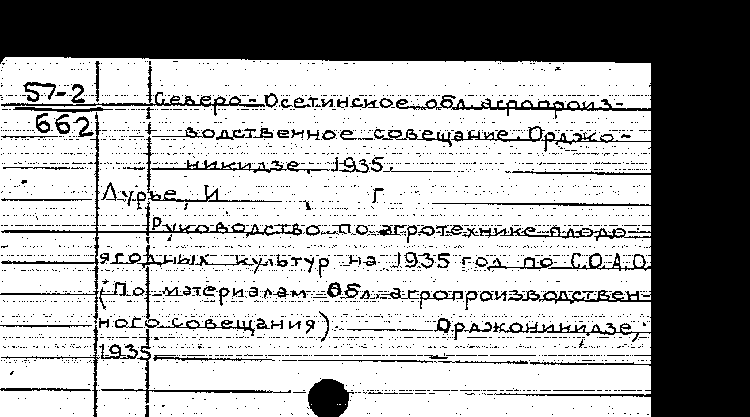 57-2
662
Северо-Осетинское обл. агропроиз-
водственное совещание. Орджо-
никидзе, 1935.
Лурье, И Г
Руководство по агротехнике плодо-
ягодных культур на 1935 год по С.О.А.О.
(По материалам Обл. агропроизводствен-
ного совещания). Орджоникидзе,
1935.